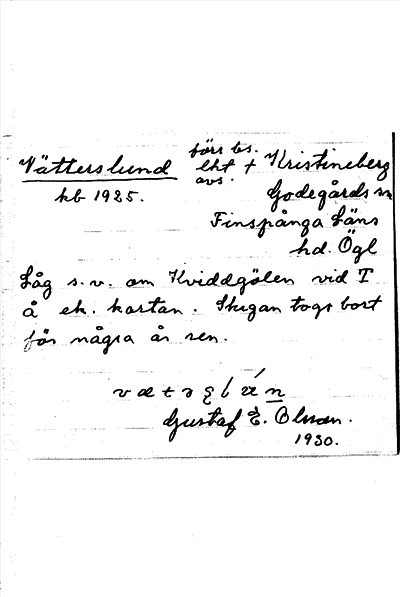 Vätterslund förs bs.
lht + Kristineberg
avs.
kb 1925. Godegårds sn
Finspånga Läns
hd. Ögl
Låg s.v. om Kviddgölen vid T
å ek. kartan. Stugan togs bort
för några år sen.
Gustaf E. Olsson.
1930.